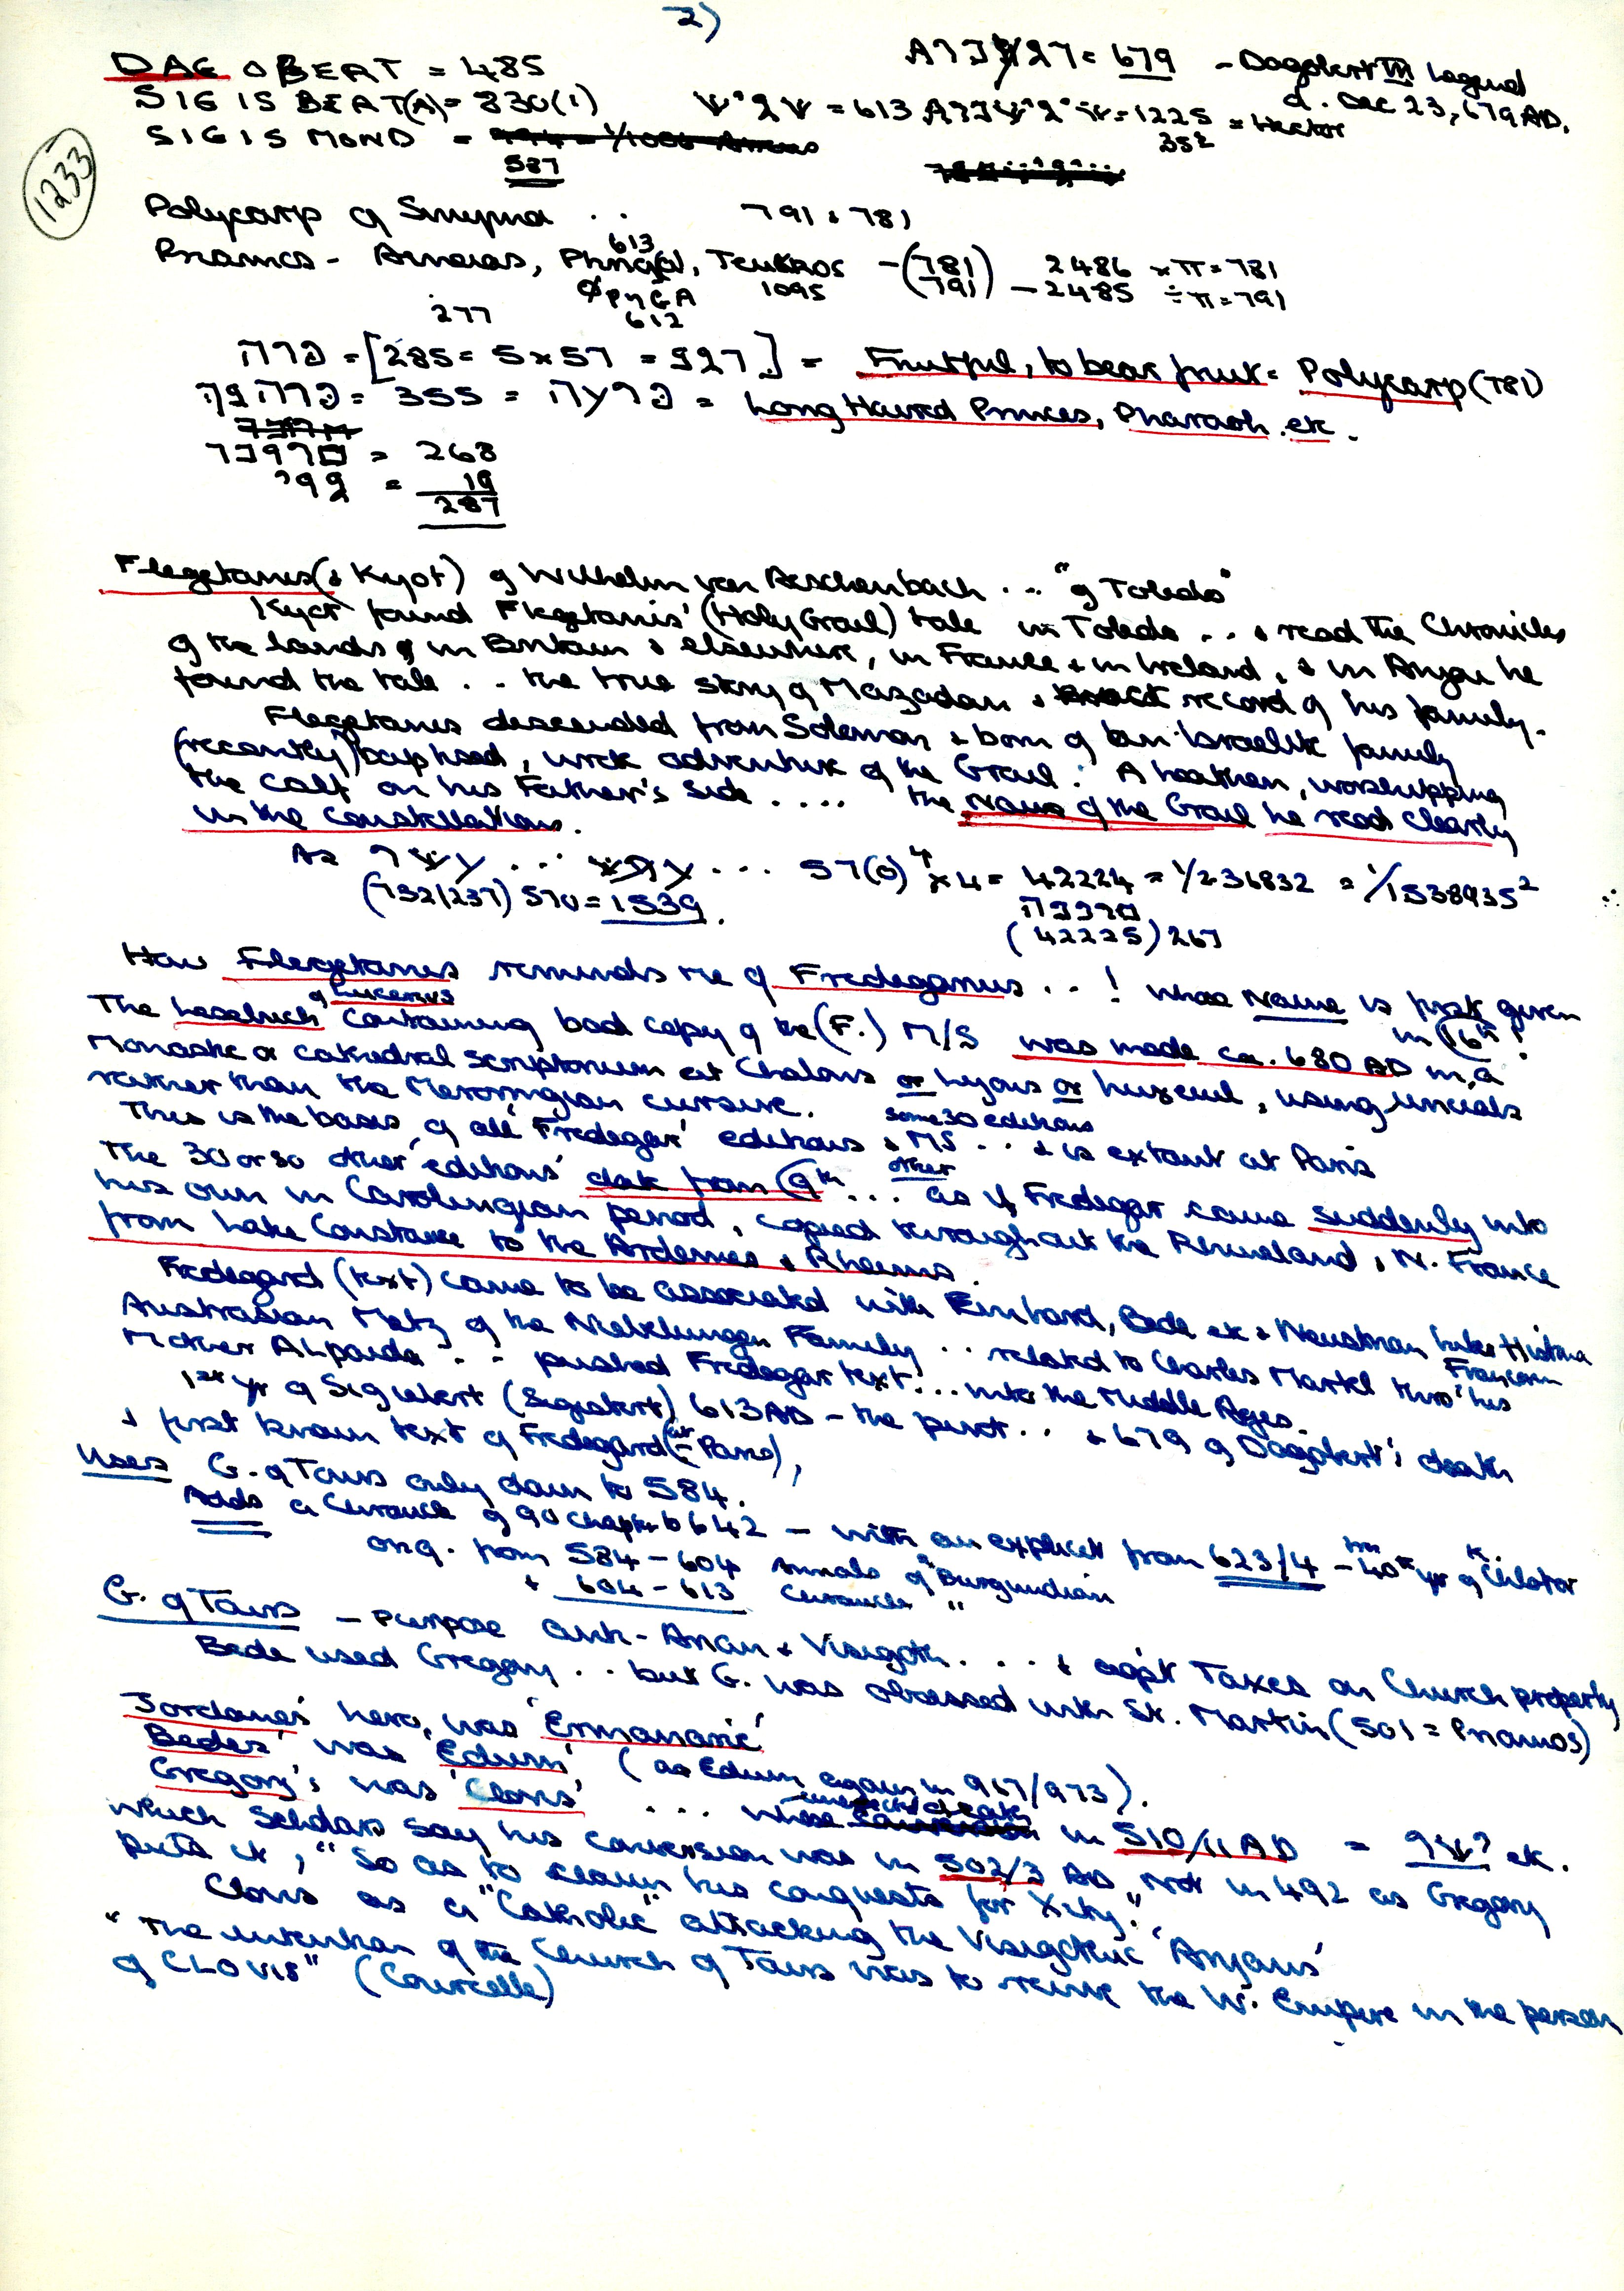 2)
DAGOBERT = 485
= 679 - Dagobert III Legend
d. Dec 23, 679 AD.
SIGISBERT(A) = 830(1)
= 613
= 1225 = Hector
352
SIGISMOND =
587
1233
Polycarp of Smyrna .. 791 & 781
613
Priamos - Aeneas, Phrygia, Teukros - (781) 2486 x π = 781
277 ΦρyGA 1095 (791) - 2485 ÷ π = 791
612
פרה = [285 = 5 x 57 = ] = Fruitful, to bear fruit = Polycarp (781)
= 355 = פרעה = Long Haired Princes, Pharaoh etc.
= 268
= 19
287
Flegetanis (& Kyot) of Wilhelm von Aeschenbach ... "of Toledo"
Kyot found Flegetanis' (Holy Grail) tale in Toledo ... & read the Chronicles
of the lands in Britain & elsewhere, in France & in Ireland, & in Anjou he
found the tale .. the true story of Mazadan & record of his family.
Flegetanis descended from Solomon & born of an Israelite family
(recently) baptised, wrote adventure of the Grail. A heathen, worshipping
the calf on his Father's side .... the Name of the Grail he read clearly
in the constellations.
As ... ... 57(0)⁴ x 4 = 42224 = 1/236832 = 1/1538935²
(732/237) 570 = 1539.
(42225) 267
How Flegetanis reminds me of Fredegarius ..! whose Name is first given
in 16th!
of Lucerius
The containing bad copy of the (F.) M/S was made ca. 680 AD in a
Monastic or cathedral scriptorium at Chalons or Lyons or Luxeuil, using Uncials
rather than the Merovingian cursive.
some 30 editions
This is the basis of all 'Fredegar' editions & MS ... & is extant at Paris
The 30 or so other 'editions' date from 9th ... as if Fredegar came suddenly into
other
his own in Carolingian period, copied throughout the Rhineland, N. France
from Lake Constance to the Ardennes & Rheims.
Fredegard (text) came to be associated with Einhard, Bede etc & Neustrian Liber Historia
Francorum
Austrasian Metz of the Niebelungen Family .. related to Charles Martel thro' his
Mother Alpaida ... pushed Fredegar text! ... into the Middle Ages.
1st yr of Sigiebert (Sigisbert) 613 AD - the pivot .. & 679 of Dagobert's death
& first known text of Fredegard (at Paris),
Uses G. of Tours only down to 584.
Adds a Chronicle of 90 chapts to 642 - with an explicit from 623/4 - 40th yr of K. Chlotar
orig. from 584 - 604 Annals of Burgundian
+ 604 - 613 Chronicle "
G. of Tours - Purpose anti-Arian & Visigoth ... & agst Taxes on Church property
Bede used Gregory .. but G. was obsessed with St. Martin (501 = Priamos)
Jordanes' hero, was 'Ermanaric'
Bedes' was 'Edwin' (as Edwin again in 967/973).
Gregory's was 'Clovis' ... whose unexpected death in 510/11 AD = ? etc.
which Scholars say his conversion was in 502/3 AD, not in 492 as Gregory
puts it, "So as to claim his conquests for Xity."
Clovis as a "Catholic" attacking the Visigothic 'Aryans'
"The intention of the Church of Tours was to revive the W. Empire in the person
of CLOVIS" (Courcelle)